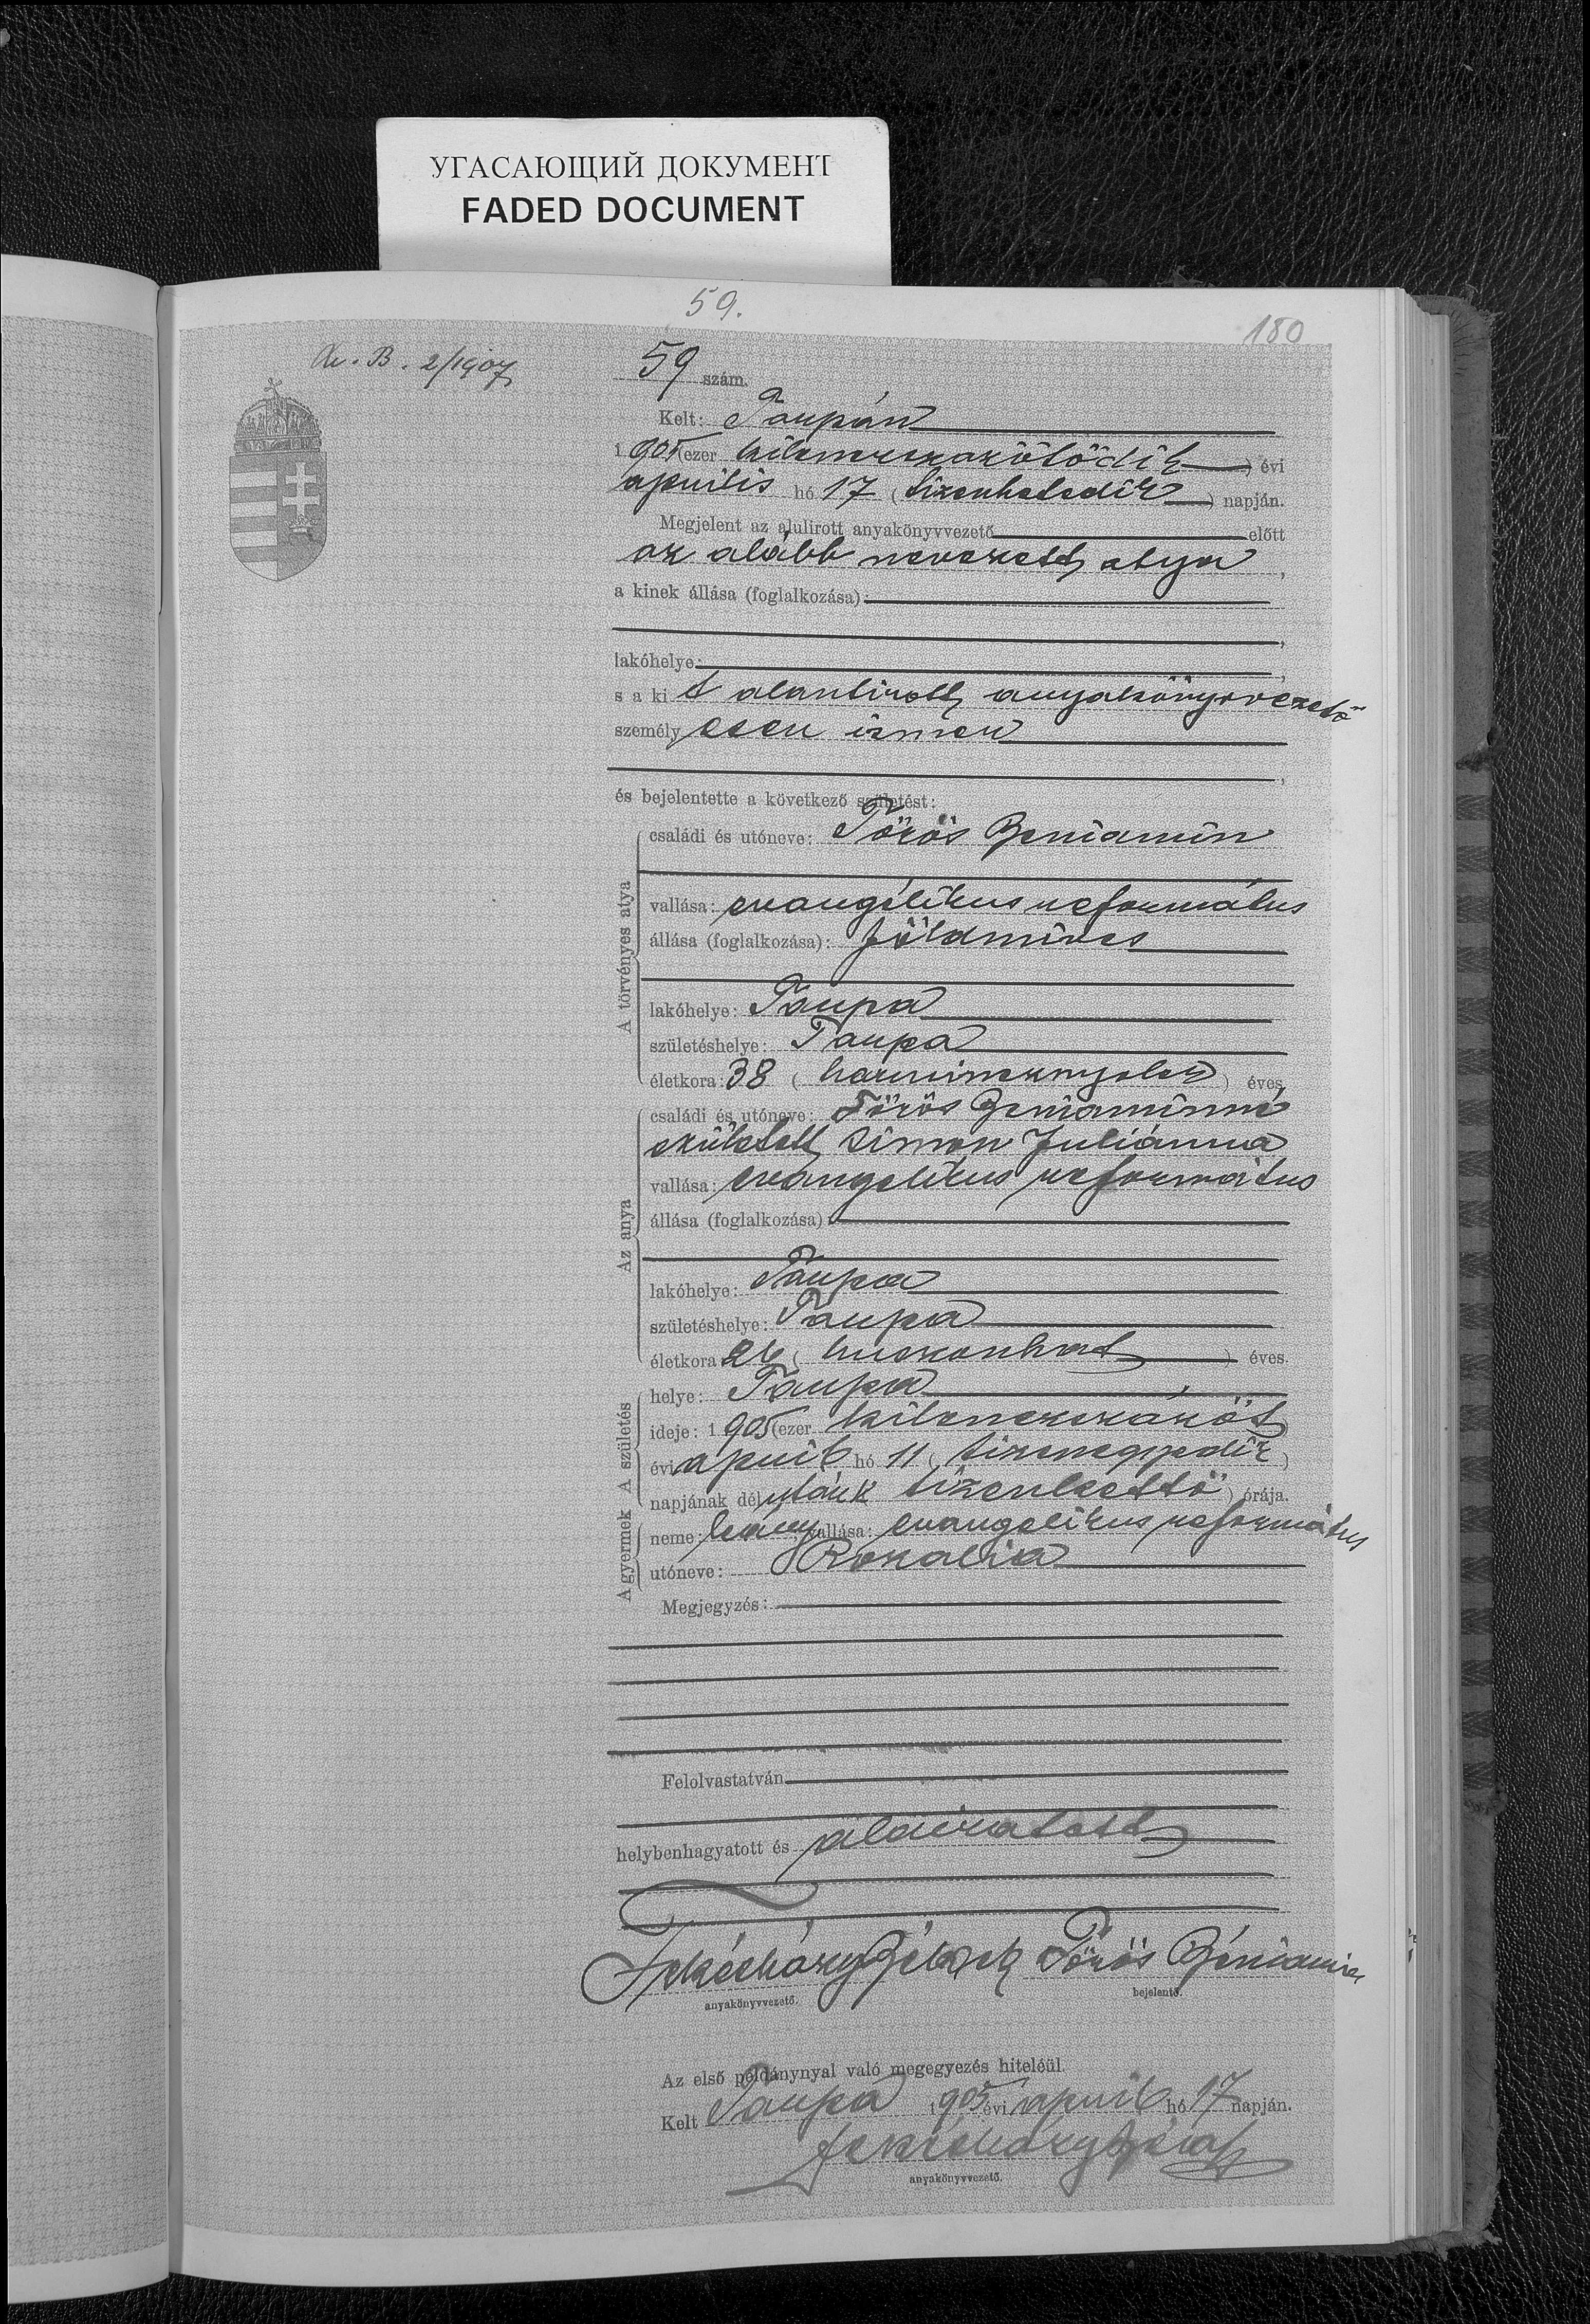 УГАСАЮЩИЙ ДОКУМЕНТ
FADED DOCUMENT
59.
180
B. 2/1907
59 szám.
Kelt: Taupán
1 905 (ezer kilenczszázötödik) évi
április hó 17 (tizenhetedik) napján.
Megjelent az alulirott anyakönyvvezető előtt
az alább nevezett atya,
a kinek állása (foglalkozása):
,
lakóhelye:,
s a ki t alantirott anyakönyvvezető
személyesen ismer
,
és bejelentette a következő születést:
A törvényes atya
családi és utóneve: Törös Beniamin
vallása: evangélikus református
állása (foglalkozása): földmíves
lakóhelye: Taupa
születéshelye: Taupa
életkora: 38 (harmincznyolcz) éves.
Az anya
családi és utóneve: Törös Beniaminné
született Simon Juliánna
vallása: evangelikus református
állása (foglalkozása):
lakóhelye: Taupa
születéshelye: Taupa
életkora 26 (huszonhat) éves.
A születés
helye: Taupa
ideje: 1 905 (ezer kilenczszázöt)
évi april hó 11 (tizenegyedik)
napjának délutáni tizenkettő) órája.
A gyermek
neme: leány vallása: evangelikus református
utóneve: Rozalia
Megjegyzés:
Felolvastatván
helybenhagyatott és aláiratott
Törös Béniamin
anyakönyvvezető.
bejelentő.
Az első példánynyal való megegyezés hiteléül.
Kelt Taupa 1905 évi april hó 17 napján.
anyakönyvvezető.